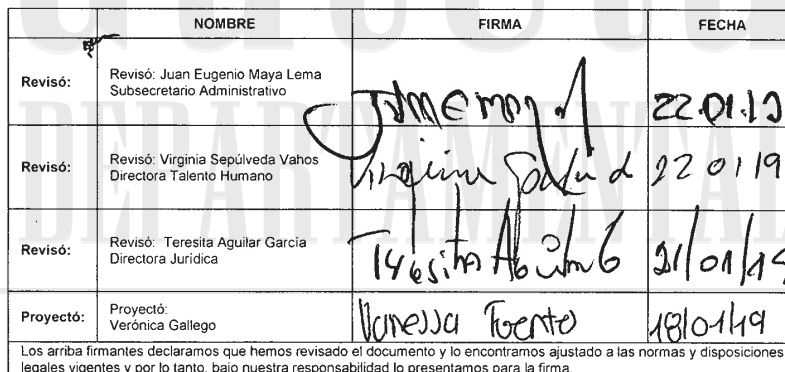 NOMBRE FIRMA FECHA
Revisó: Revisó: Juan Eugenio Maya Lema
Subsecretario Administrativo
22.01.19
Revisó: Revisó: Virginia Sepúlveda Vahos
Directora Talento Humano
Virginia 22 01 19
Revisó: Revisó: Teresita Aguilar García
Directora Jurídica
Teresita Aguilar G 21/01/19
Proyectó: Proyectó:
Verónica Gallego
Vanessa Fuerte 18/01/19
Los arriba firmantes declaramos que hemos revisado el documento y lo encontramos ajustado a las normas y disposiciones
legales vigentes y por lo tanto, bajo nuestra responsabilidad lo presentamos para la firma.
DEPARTAMENTAL